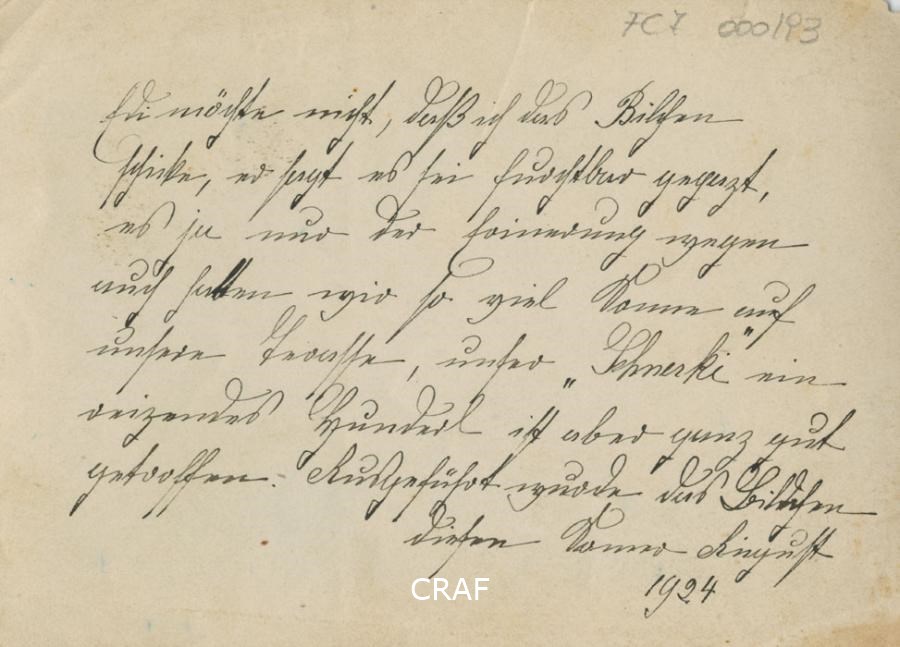 FC7 000193
Edi möchte nicht, daß ich das Bilchen
schicke, er sagt es sei furchtbar gepazt,
es ja nur der Erinerung wegen
auch hatten wir so viel Sonne auf
unsere Terasse, unser „Schnerki" ein
reizendes Hunderl ist aber ganz gut
getroffen. Ausgeführt wurde das Bildchen
diesen Somer August
1924
CRAF